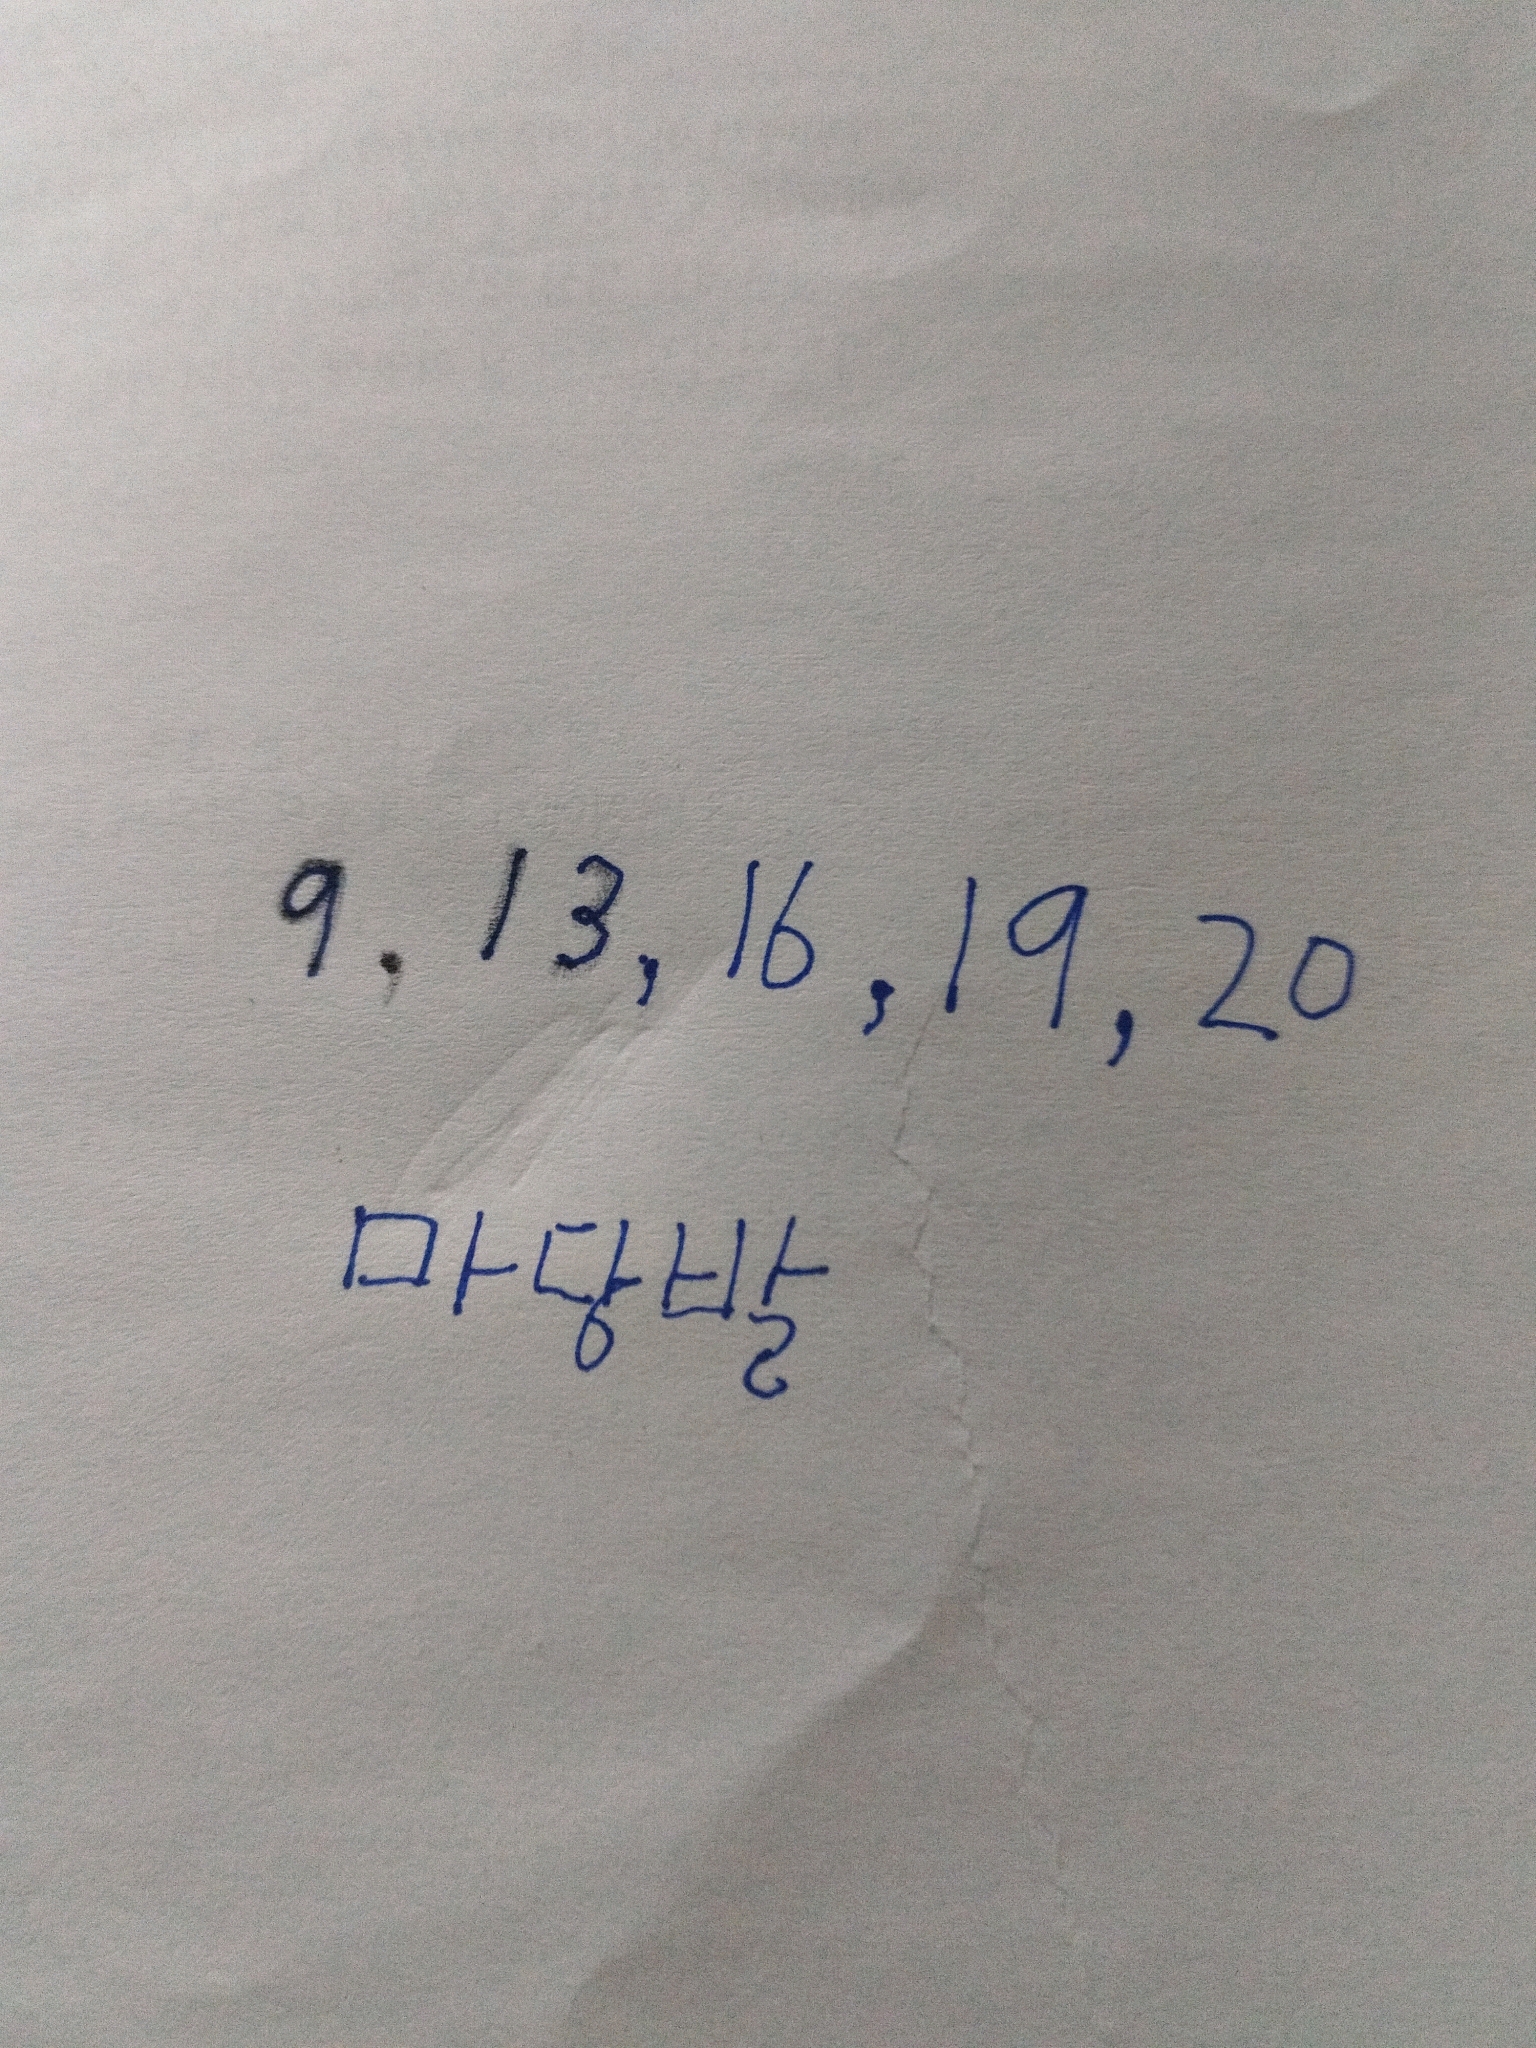 9, 13, 16, 19, 20
마당발